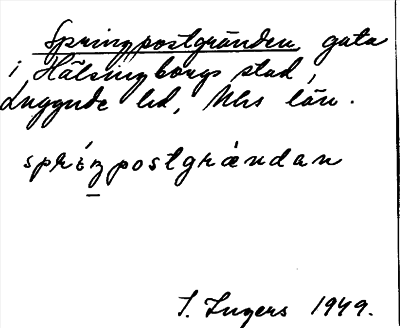 Springpostgränden gata
i Hälsingborgs stad,
Luggude hd, Mhs län.
sprıŋpostgrændan
I. Ingers 1949.